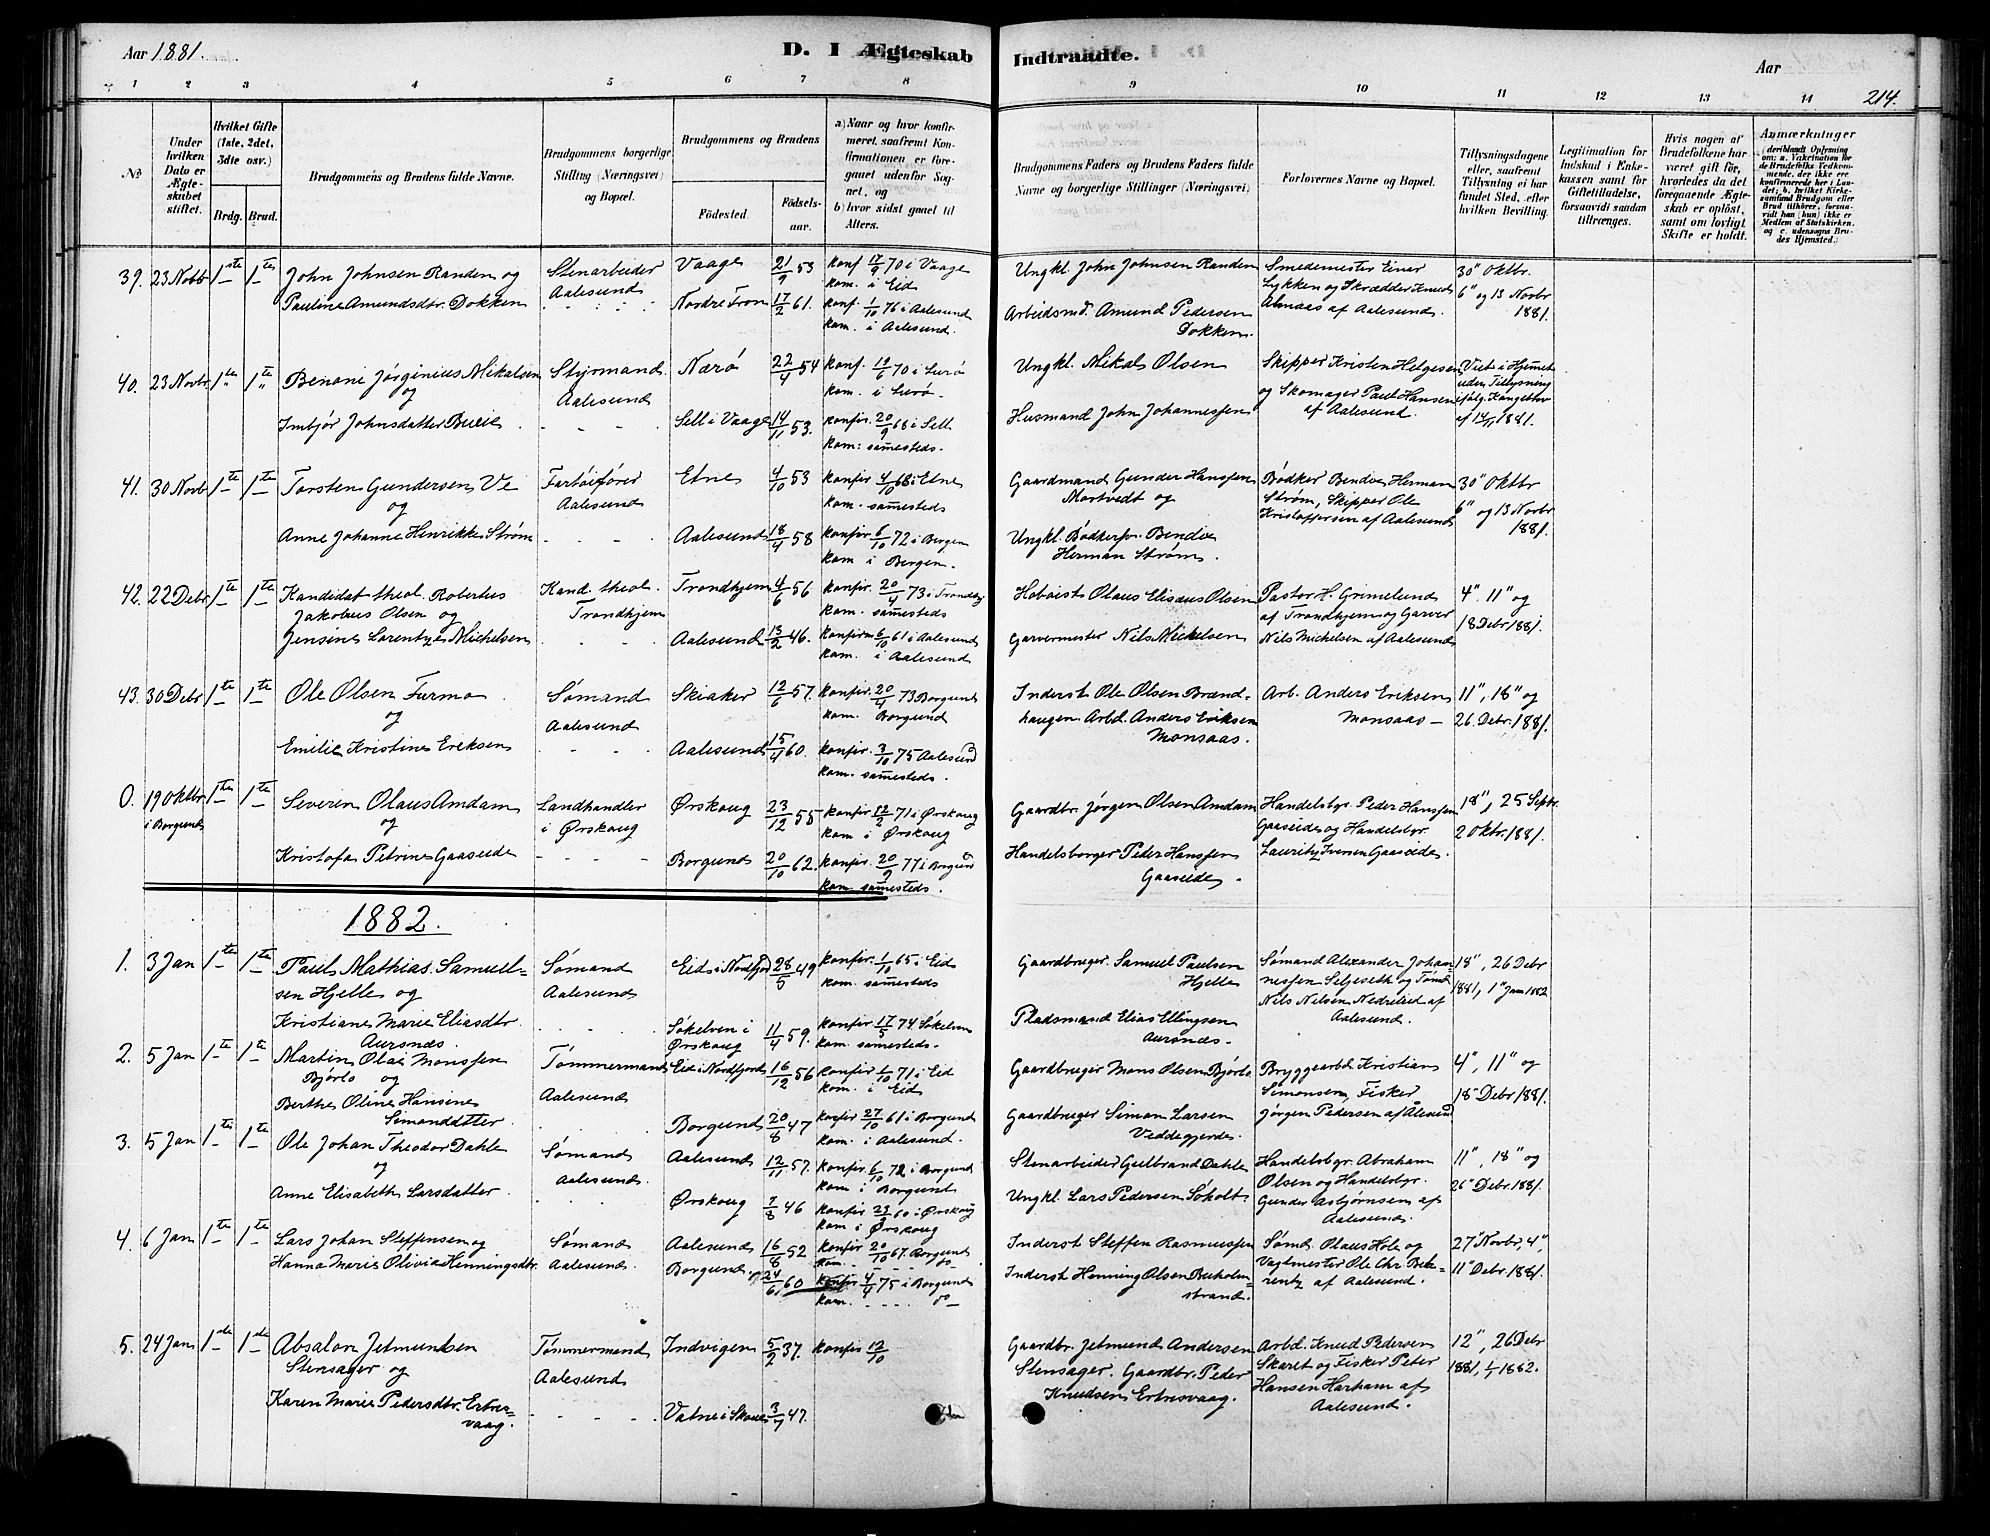 Aar 1881.
D. I Ægteskab
Indtraadte.
Aar
214.
1 2 3 4 5 6 7 8 9 10 11 12 13 14
No
Under hvilken Dato er Ægteskabet stiftet.
Hvilket Gifte (1ste, 2det, 3die osv.)
Brdg. Brud.
Brudgommens og Brudens fulde Navne.
Brudgommens borgerlige Stilling (Næringsvei) og Bopæl.
Brudgommens og Brudens
Fødested. Fødsels-aar.
a) Naar og hvor konfirmeret, saafremt Konfirmationen er foregaaet udenfor Sognet, og
b) hvor sidst gaaet til Alters.
Brudgommens Faders og Brudens Faders fulde Navne og borgerlige Stillinger (Næringsvei)
Forlovernes Navne og Bopæl.
Tillysningsdagene eller, saafremt Tillysning ei har fundet Sted, efter hvilken Bevilling.
Legitimation for Indskud i Enkekassen samt for Giftetilladelse, forsaavidt saadan tiltrænges.
Hvis nogen af Brudefolkene har været gift før, hvorledes da det foregaaende Ægteskab er opløst, samt om lovligt Skifte er holdt.
Anmærkninger
39. 23 Novb 1ste 1ste John Johnsen Randen og Stenarbeider Vaage 21/9 53 konf 17/9 70 i Vaage Ungkl. John Johnsen Randen Smedemester Einar 30" Oktbr.
Aalesund kom. i Eid Lykken og Skrædder Knud 6" og 13 Novbr
Pauline Amundsdtr. Dokken Nordre Fron 17/2 61. konf. 1/10 76 i Aalesund Arbeidsmd. Amund Pedersen Almaas af Aalesund. 1881.
kom. i Aalesund. Dokken.
40. 23 Novbr 1te 1te Benoni Jørginius Mikalsen Styrmand Nærø 22/4 54 konf. 19/6 70 i Lurø Ungkl. Mikal Olsen Skipper Kristen Helgesen Viet i Hjemet
og Aalesund kom. i Lurø. og Skomager Paul Hansen uden Tillysning
Imbjør Johnsdatter Sell i Vaage 14/11 53. konfir. 20/9 68 i Sell Husmand John Johannessen af Aalesund. af 14/11 1881.
kom: samesteds.
41. 30 Novb 1te 1te Torsten Gundersen Ve Fartøifører Etne 4/10 53 konfir 4/10 68 i Etne Gaardmand Gunder Hanssen Bødker Bendix Herman 30" Oktbr
og Aalesund kom. samesteds Mortvedt og Strøm, Skipper Ole 6" og 13 Novbr
Anne Johanne Henrikke Strøm Aalesund 18/4 58 konfir. 6/10 72 i Bergen Ungkl. Bødkersv. Bendix Kristoffersen af Aalesund 1881.
kom i Bergen. Herman Strøm.
42. 22 Debr 1te 1te Kandidat theol. Robertus Kand. theol. Trondhjem 4/6 56 konfir. 20/4 73 i Trondhj Hoboist Olaus Elisæus Olsen Pastor H. Grimelund 4". 11" og
Jakobus Olsen og Trondhjem kom. samesteds af Trondhjem og Garver 18 Debr 1881.
Jensine Larentze Michelsen Aalesund 13/2 46. konfirm 6/10 61 i Aalesund Garvermester Nils Michelsen Nils Michelsen af Aalesund
kom. i Aalesund
43. 30 Debr 1te 1te Ole Olsen Furmo Sømand Skiaker 12/6 57. konfir. 20/4 73 Borgund Inderst Ole Olsen Brænd- Arb. Anders Eriksen 11", 18" og
og Aalesund kom. Borgund haugen. Arbd. Anders Eriksen Monsaas 26. Debr. 1881.
Emilie Kristine Eriksen Aalesund 15/4 60. konfir. 3/10 75 Aalesund Monsaas.
kom. samesteds.
0. 19 Oktbr 1te 1te Severin Olaus Amdam Landhandler Ørskoug 23/12 55 konfir. 12/2 71 i Ørskoug Gaardbr. Jørgen Olsen Amdam Handelsbgr. Peder Hanssen 18", 25 Septr.
i Borgund og i Ørskoug kom i Ørskoug Gaaseide og Handelsbgr. 2 Oktbr. 1881.
Kristofa Petrine Gaaseide Borgund 20/10 62. konfir. 20/9 77 i Borgund Handelsborger Peder Hanssen Lauritz Iversen Gaaseide.
kom. samesteds. Gaaseide.
1882.
1. 3 Jan 1te 1te Paul Mathias Samuel- Sømand Eid i Nordfjord 28/5 49 konfir. 1/10 65 i Eid Gaardbruger. Samuel Paulsen Sømand Alexander Johan- 18", 26 Debr
sen Hjelle og Aalesund kom. samesteds Hjelle nessen Selgeseth og Tømd. 1881, 1" Jan 1882
Kristiane Marie Eliasdtr. Søkelven i Ørskoug 11/4 59. konfir. 17/5 74 Søkelven Pladsmand Elias Ellingsen Nils Nilsen Nedrelied af
Aursnæs. kom. samesteds. Aursnæs. Aalesund.
2. 5 Jan 1te 1te Martin Olai Monssen Tømmermand Eid i Nordfjord 16/12 56 konfir 1/10 71 i Eid Gaardbruger Mons Olsen Bjørlo Bryggearbd. Kristian 4", 11" og
Bjørlo og Aalesund kom. i Eid Simonsen, Fisker 18" Debr 1881.
Berthe Oline Hansine Borgund 20/8 47 konfir 27/10 61 i Borgund Gaardbruger Simon Larsen Jørgen Pedersen af Ålesund
Simonddtter kom. i Aalesund. Veddegjerde.
3. 5 Jan 1te 1te Ole Johan Theodor Dahle Sømand Aalesund 12/11 57. konfir 6/10 72 i Borgund Stenarbeider Gulbrand Dahle Handelsbgr. Abraham 11", 18" og
og Aalesund. kom i Borgund Olsen og Handelsbgr. 26" Debr. 1881.
Anne Elisabeth Larsdatter Ørskoug 7/8 46 konfir 23/9 60 i Ørskoug Ungkl. Lars Pedersen Søholt Gunder Asbjørnsen af
kom i Ørskoug Aalesund.
4. 6 Jan 1te 1te Lars Johan Steffensen og Sømand Aalesund 16/8 52 konfir 20/10 67. Borgund Inderst Steffen Rasmussen Sømd. Olaus Hole og 27" Novbr, 4",
Hanna Marie Olivia Henningsdtr. Aalesund. Borgund. 24/6 60 konfir 4/4 75 i Borgund Inderst Henning Olsen Buholm- Vagtmester Ole Chr. 11" Debr. 1881.
kom. do strand. af Aalesund.
5. 24 Jan 1ste 1ste Absalon Jetmundsen Tømmermand Indvigen 5/2 37. konfir 12/10 Gaardbr. Jetmund Andersen Arbd. Knud Pedersen 12", 26 Debr
Stensager og Aalesund Stensager. Gaardbr. Peder Skaret og Fisker Peter 1881, 1/1 1882.
Karen Marie Pedersdtr. Ertnes- Vatne i Skoue 3/7 47. Knudsen Ertnesvaag. Hansen Harham af
vaag. Aalesund.